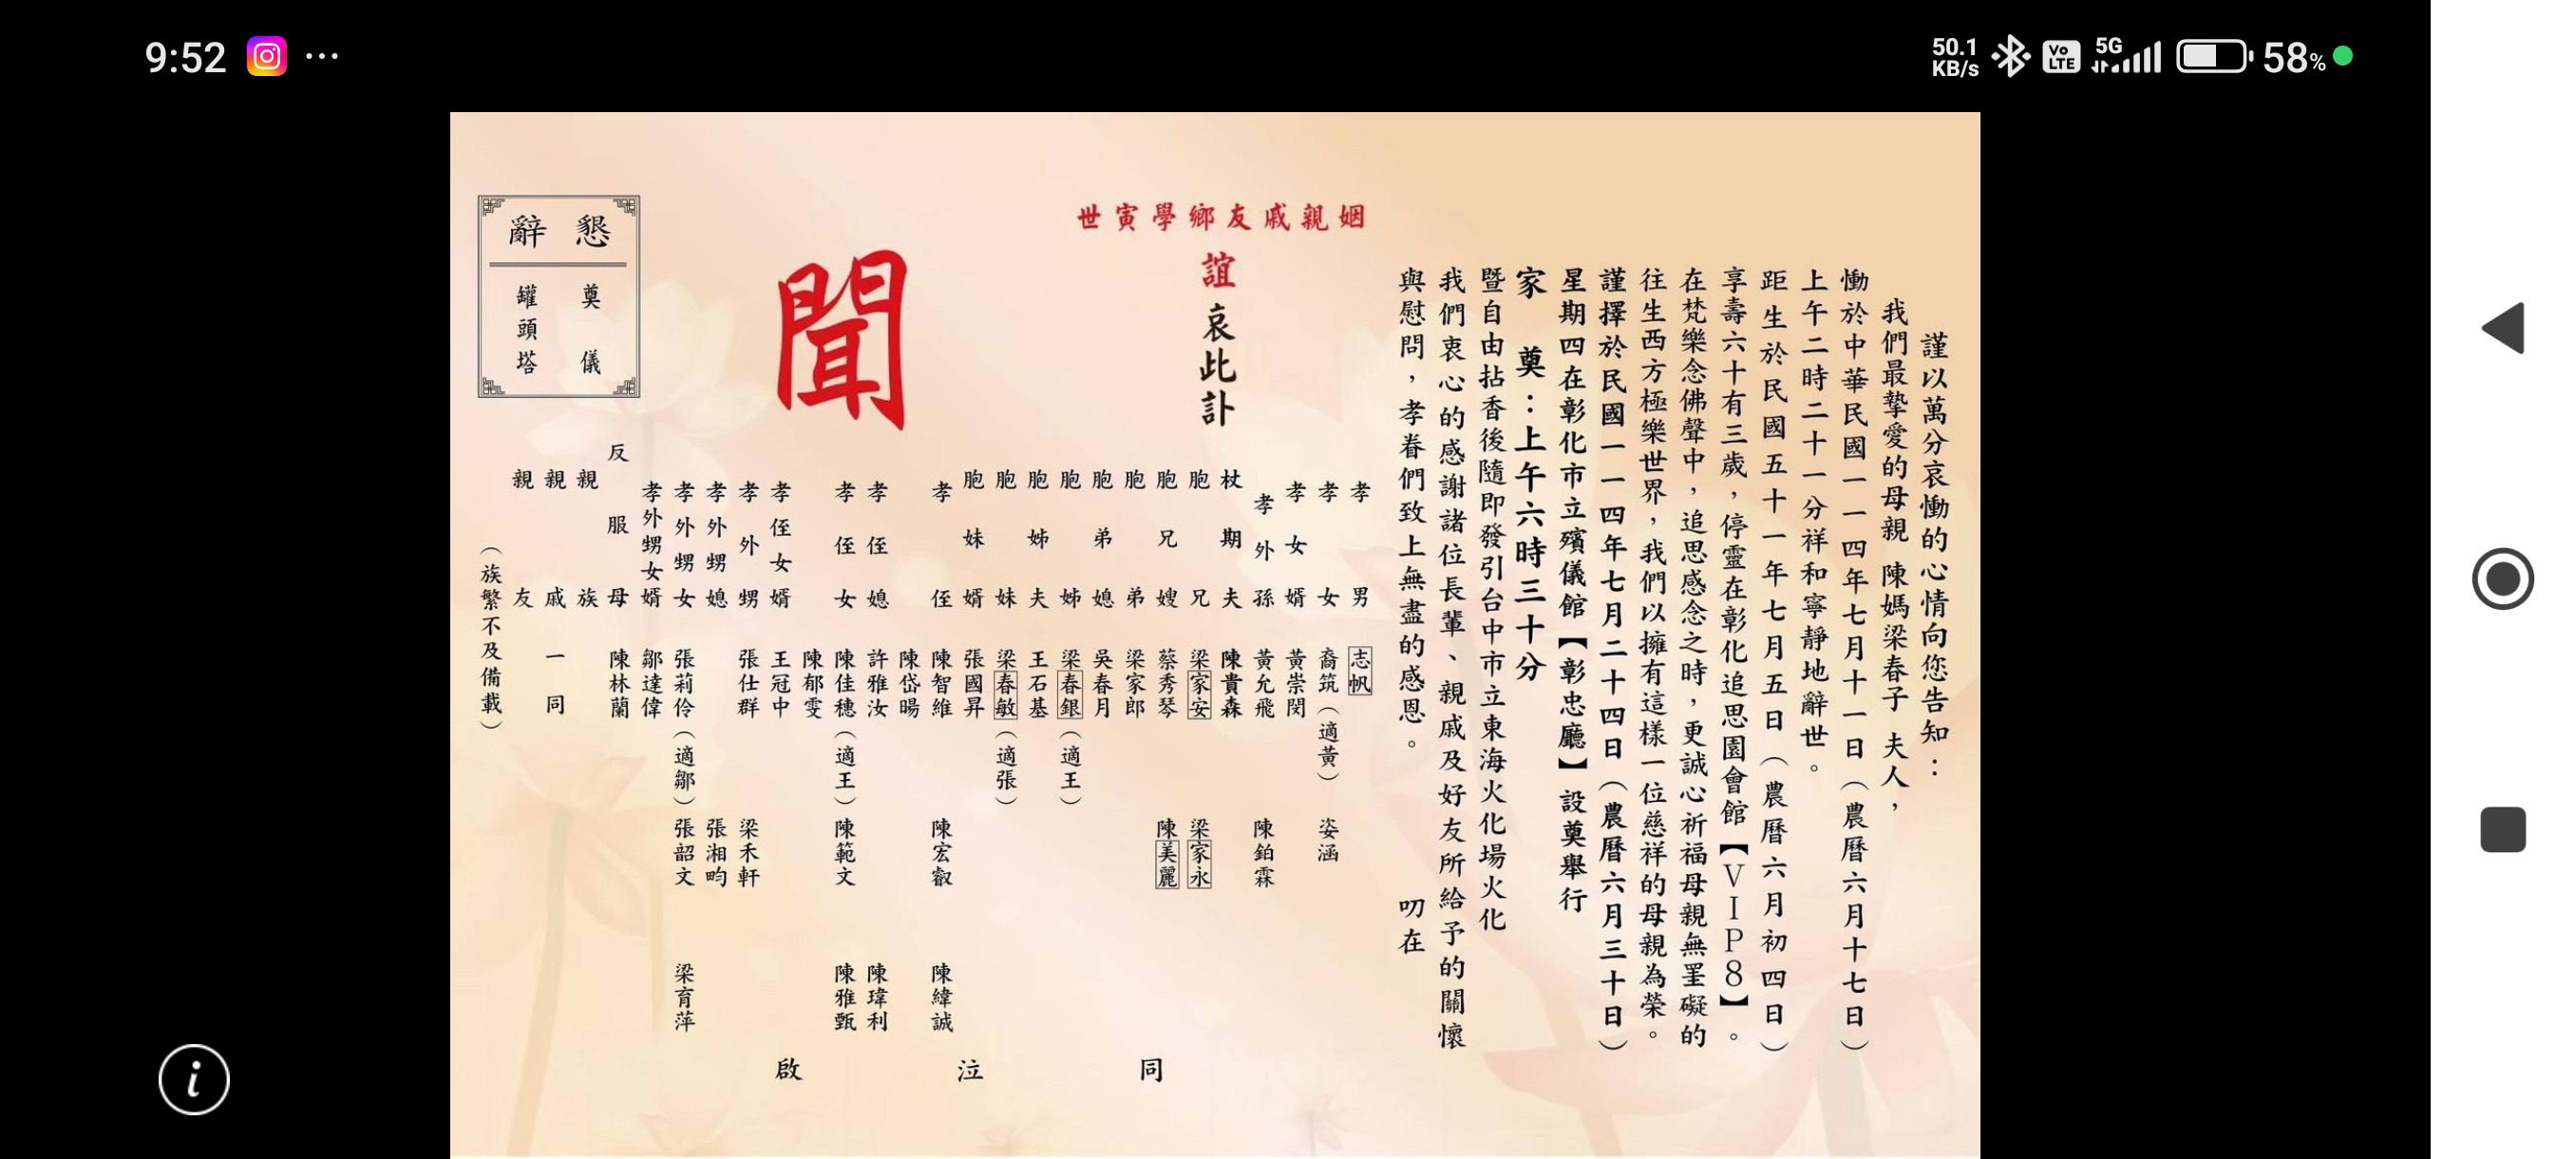 9:52
50.1 KB/s VoLTE 5G 58%
謹以萬分哀慟的心情向您告知：
我們最摯愛的母親 陳媽梁春子 夫人，
慟於中華民國一一四年七月十一日（農曆六月十七日）
上午二時二十一分祥和寧靜地辭世。
距生於民國五十一年七月五日（農曆六月初四日）
享壽六十有三歲，停靈在彰化追思園會館【VIP8】。
在梵樂念佛聲中，追思感念之時，更誠心祈福母親無罣礙的
往生西方極樂世界，我們以擁有這樣一位慈祥的母親為榮。
謹擇於民國一一四年七月二十四日（農曆六月三十日）
星期四在彰化市立殯儀館【彰忠廳】設奠舉行
家 奠：上午六時三十分
暨自由拈香後隨即發引台中市立東海火化場火化
我們衷心的感謝諸位長輩、親戚及好友所給予的關懷
與慰問，孝眷們致上無盡的感恩。 叨在
姻親戚友鄉學寅世
誼 哀此訃
聞
孝男 志帆
孝女 裔筑（適黃） 姿涵
孝女婿 黃崇閔
孝外孫 黃允飛 陳鉑霖
杖期夫 陳貴森
胞兄 梁家安 梁家永
胞兄嫂 蔡秀琴 陳美麗
胞弟 梁家郎
胞弟媳 吳春月
胞姊 梁春銀（適王）
胞姊夫 王石基
胞妹 梁春敏（適張）
胞妹婿 張國昇
孝侄 陳智維 陳宏叡 陳緯誠
陳岱暘
孝侄媳 許雅汝 陳瑋利
孝侄女 陳佳穗（適王） 陳範文 陳雅甄
陳郁雯
孝侄女婿 王冠中
孝外甥 張仕群 梁禾軒
孝外甥媳 張湘畇
孝外甥女 張莉伶（適鄒） 張韶文 梁育萍
孝外甥女婿 鄒達偉
反服母 陳林蘭
親族
親戚 一同
親友
（族繁不及備載）
同 泣 啟
懇辭
奠儀
罐頭塔